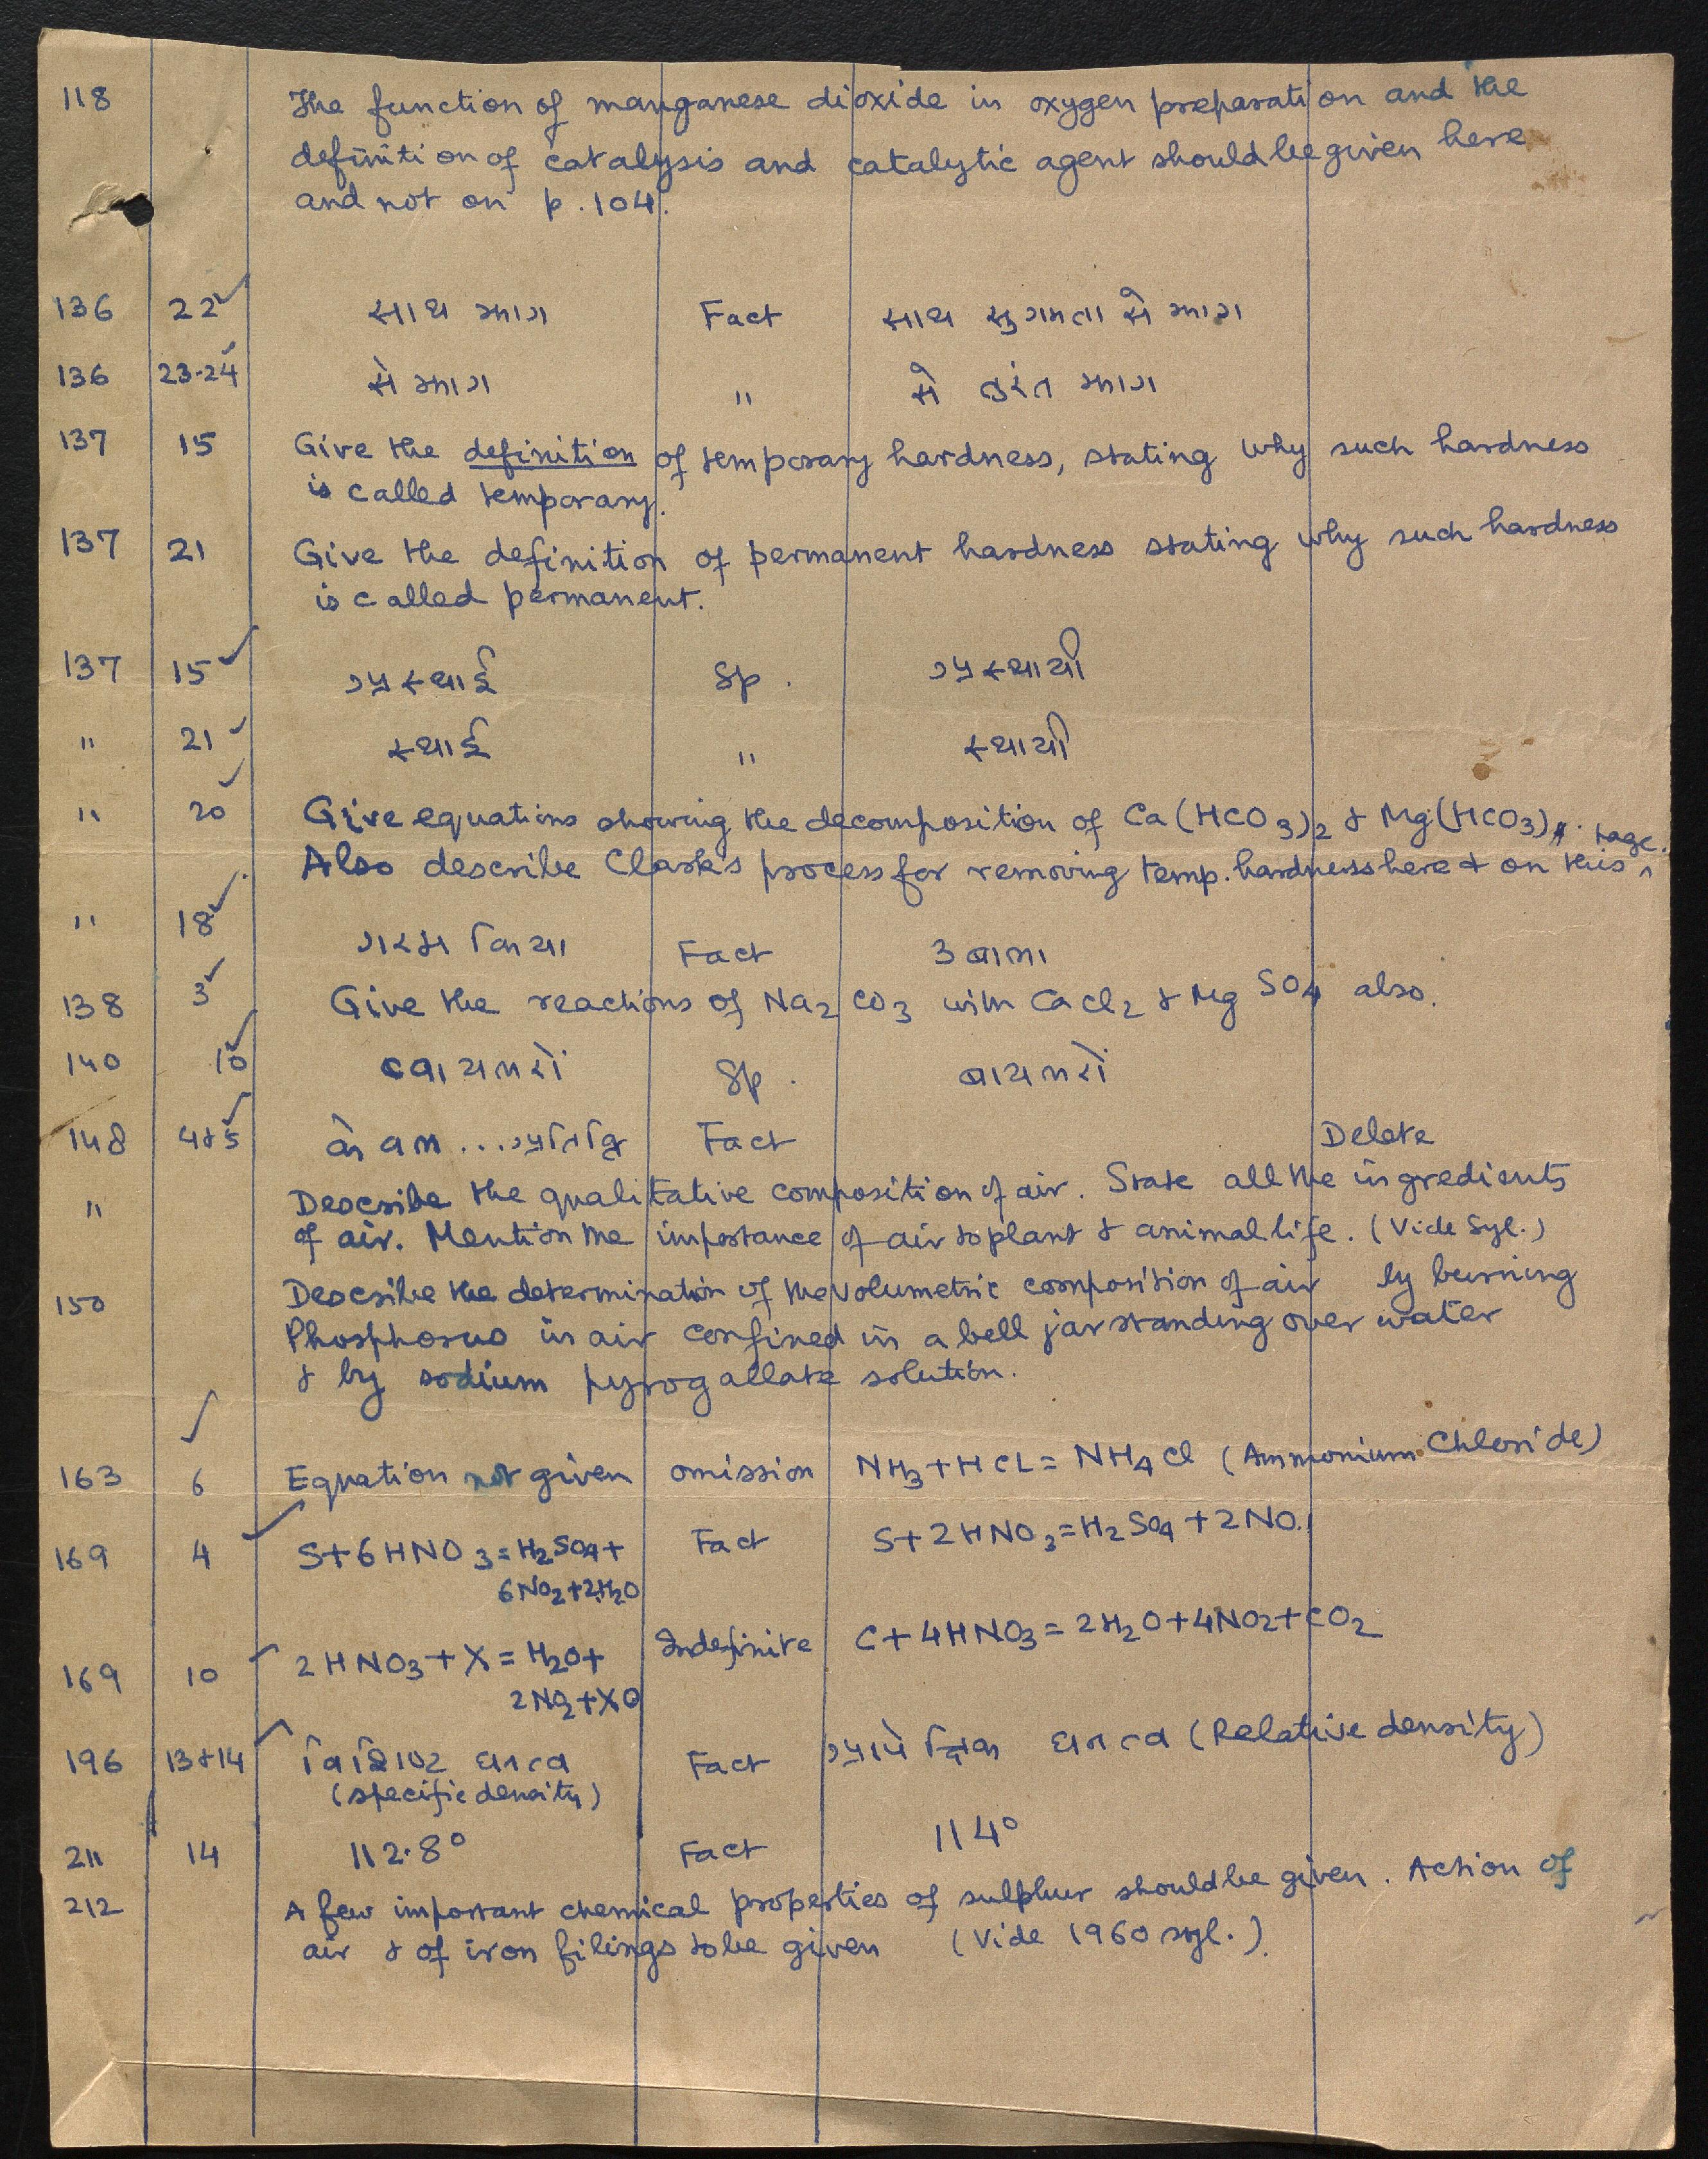 118 The function of manganese dioxide in oxygen preparation and the
definition of catalysis and catalytic agent should be given here
and not on p. 104.
136 22 साथ झाग Fact साथ सुगमता से झाग
136 23-24 से झाग " से तुरंत झाग
137 15 Give the definition of temporary hardness, stating why such hardness
is called temporary.
137 21 Give the definition of permanent hardness stating why such hardness
is called permanent.
137 15 अस्थाई Sp. अस्थायी
" 21 स्थाई " स्थायी
" 20 Give equations showing the decomposition of Ca(HCO3)2 & Mg(HCO3)2.
Also describe Clark's process for removing temp. hardness here & on this page.
" 18 गरम किया Fact उबाला
138 3 Give the reactions of Na2CO3 with CaCl2 & MgSO4 also.
140 10 Sp.
148 4&5 Fact Delete
" Describe the qualitative composition of air. State all the ingredients
of air. Mention the importance of air to plant & animal life. (Vide Syl.)
150 Describe the determination of the volumetric composition of air by burning
Phosphorus in air confined in a bell jar standing over water
& by sodium pyrogallate solution.
163 6 Equation not given omission NH3+HCL=NH4Cl (Ammonium Chloride)
169 4 S+6HNO3=H2SO4+ Fact S+2HNO3=H2SO4+2NO.
6NO2+2H2O
169 10 2HNO3+X=H2O+ Indefinite C+4HNO3=2H2O+4NO2+CO2
2NO2+XO
196 13&14 विशिष्ट घनत्व Fact आपेक्षिक घनत्व (Relative density)
(specific density)
211 14 112.8° Fact 114°
212 A few important chemical properties of sulphur should be given. Action of
air & of iron filings to be given (Vide 1960 syl.).